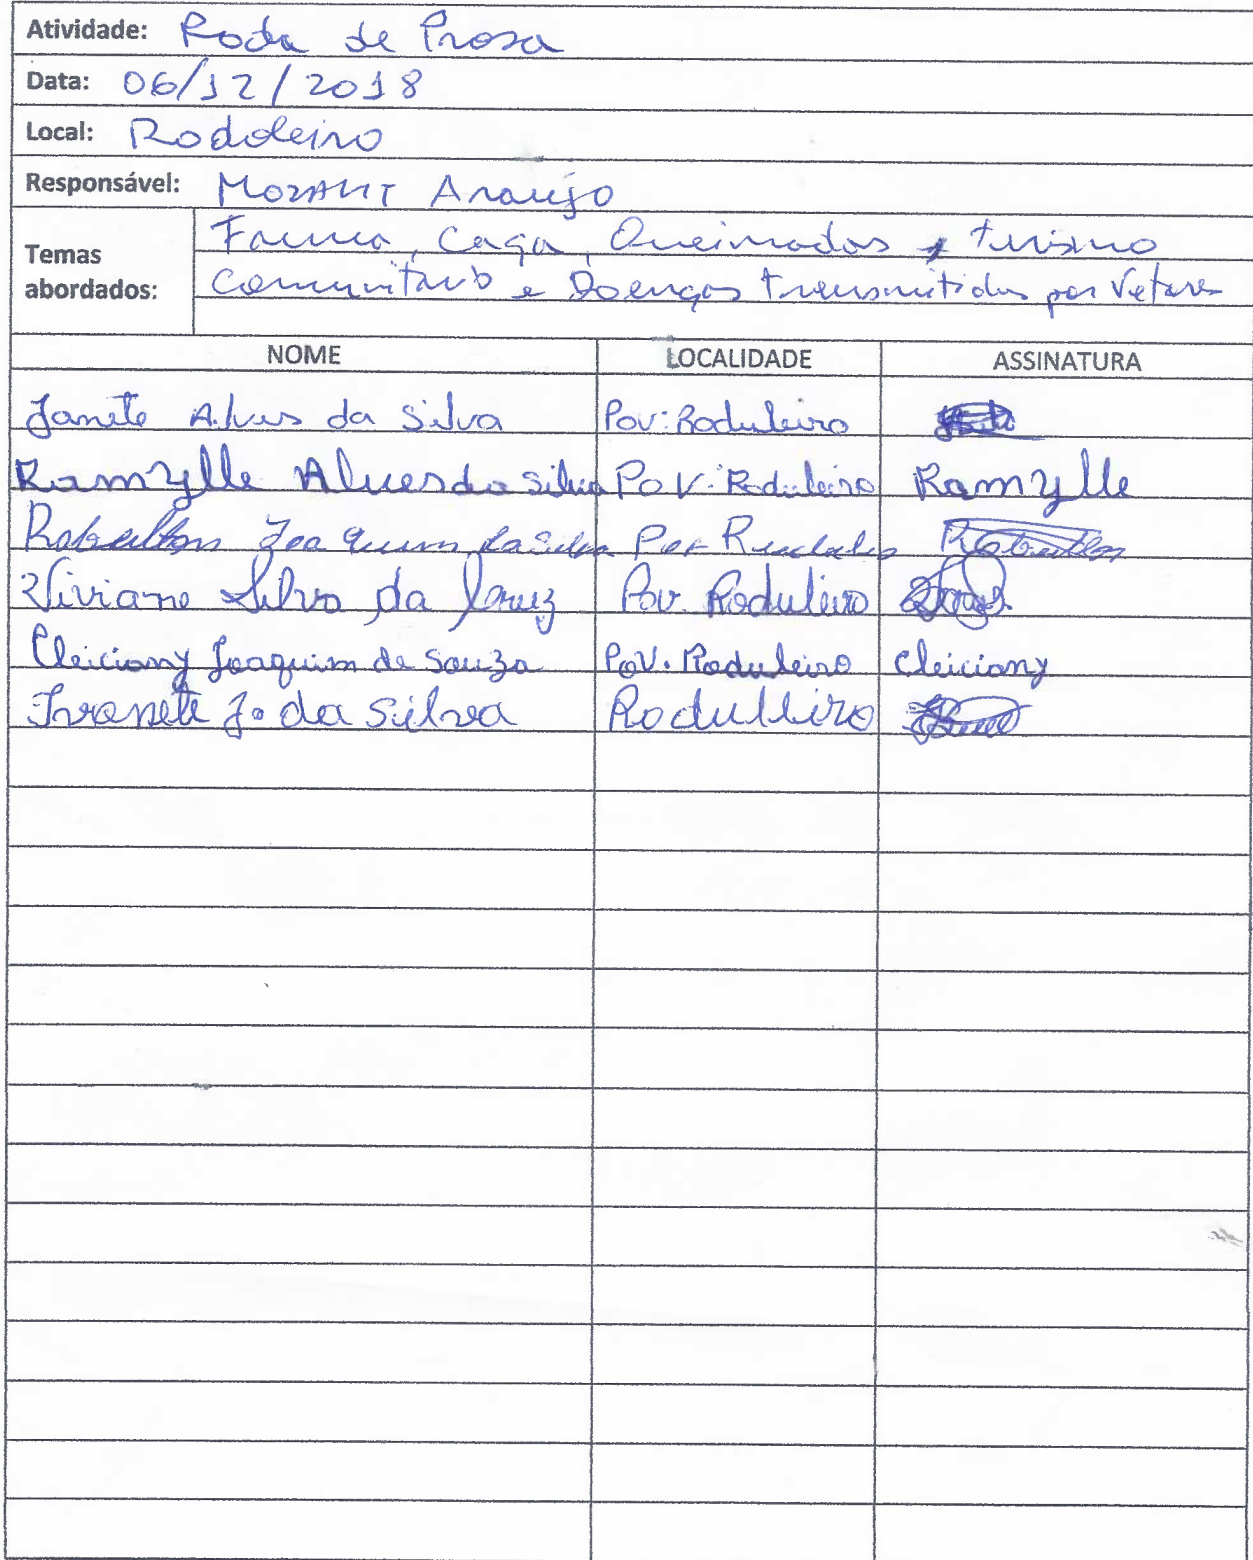 Atividade: Roda de Prosa
Data: 06/12/2018
Local: Rodoleiro
Responsável: Mozart Araujo
Temas abordados: Fauna, Caça, Queimadas e turismo
Comunitario e Doenças transmitidas por Vetores
NOME LOCALIDADE ASSINATURA
Janete Alves da Silva Pov: Roduleiro
Ramylle Alves da Silva Pov: Roduleiro Ramylle
Joaquim da Silva Pov
Viviane Silva da Cruz Pov. Roduleiro
Cleiciany Joaquim de Souza Pov. Roduleiro Cleiciany
Ivonete Jo da Silva Rodulleiro